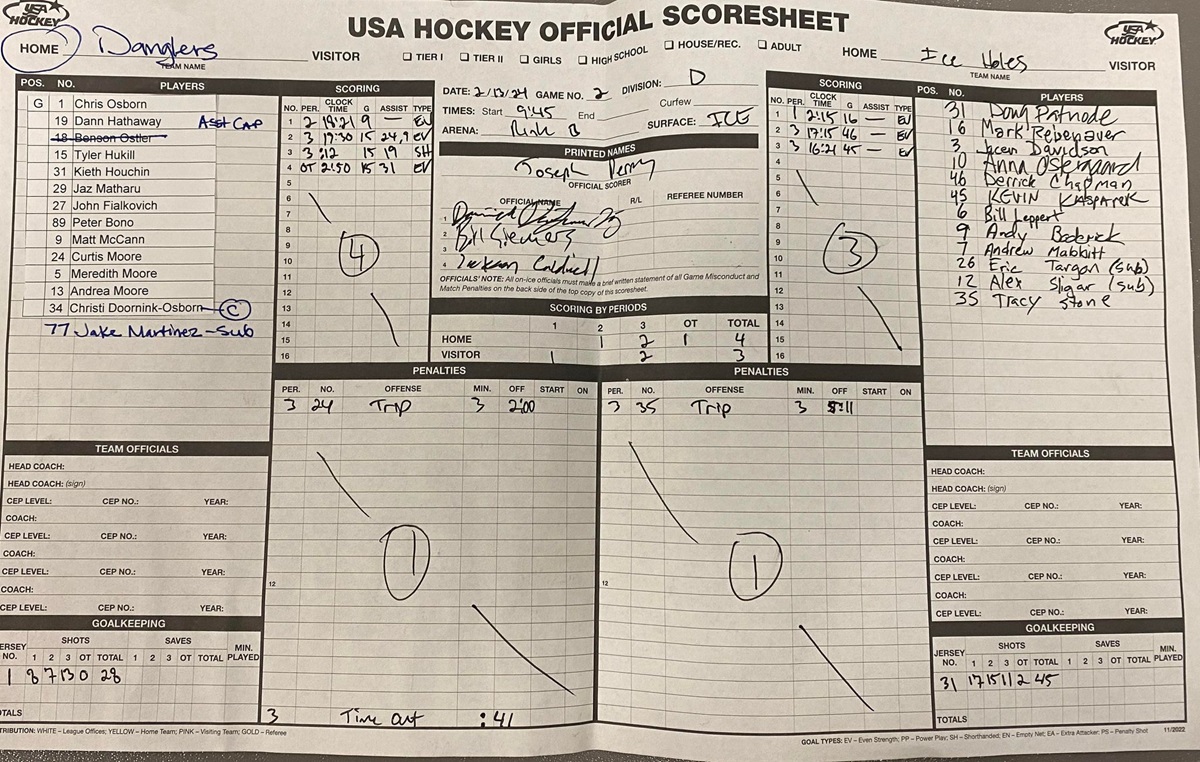 USA HOCKEY
USA HOCKEY OFFICIAL SCORESHEET
USA HOCKEY
HOME Danglers VISITOR
TEAM NAME
☐ TIER I ☐ TIER II ☐ GIRLS ☐ HIGH SCHOOL ☐ HOUSE/REC. ☐ ADULT
HOME Ice Holes VISITOR
TEAM NAME
POS. NO. PLAYERS
G 1 Chris Osborn
19 Dann Hathaway Asst CAP
18 Benson Ostler
15 Tyler Hukill
31 Kieth Houchin
29 Jaz Matharu
27 John Fialkovich
89 Peter Bono
9 Matt McCann
24 Curtis Moore
5 Meredith Moore
13 Andrea Moore
34 Christi Doornink-Osborn C
77 Jake Martinez-Sub
SCORING
NO. PER. CLOCK TIME G ASSIST TYPE
1 2 18:21 9 — EV
2 3 17:30 15 24,9 EV
3 3 :12 15 19 SH
4 OT 2:50 15 31 EV
5
6
7
8
9
10
11
12
13
14
15
16
4
DATE: 2/13/24 GAME NO. 2 DIVISION: D
TIMES: Start 9:45 End Curfew
ARENA: Rink B SURFACE: ICE
PRINTED NAMES
Joseph Perry
OFFICIAL SCORER
OFFICIAL NAME R/L REFEREE NUMBER
1
2 Bill Siemers
3
4 Jackson Caldwell
OFFICIALS' NOTE: All on-ice officials must make a brief written statement of all Game Misconduct and
Match Penalties on the back side of the top copy of this scoresheet.
SCORING BY PERIODS
1 2 3 OT TOTAL
HOME 1 2 1 4
VISITOR 1 2 3
SCORING
NO. PER. CLOCK TIME G ASSIST TYPE
1 1 2:15 16 — EV
2 3 17:15 46 — EV
3 3 16:21 45 — EV
4
5
6
7
8
9
10
11
12
13
14
15
16
3
POS. NO. PLAYERS
31 Doug Patnode
16 Mark Rebenaver
3 Jacen Davidson
10 Anna Ostergaard
46 Derrick Chapman
45 KEVIN KASPAREK
6 Bill Leppert
9 Andy
7 Andrew Mabbitt
26 Eric Targan (sub)
12 Alex Sligar (sub)
35 Tracy Stone
PENALTIES
PER. NO. OFFENSE MIN. OFF START ON
3 24 Trip 3 2:00
12
1
3 Time out :41
PENALTIES
PER. NO. OFFENSE MIN. OFF START ON
3 35 Trip 3 5:11
12
1
TEAM OFFICIALS
HEAD COACH:
HEAD COACH: (sign)
CEP LEVEL: CEP NO.: YEAR:
COACH:
CEP LEVEL: CEP NO.: YEAR:
COACH:
CEP LEVEL: CEP NO.: YEAR:
COACH:
CEP LEVEL: CEP NO.: YEAR:
GOALKEEPING
ERSEY NO. SHOTS 1 2 3 OT TOTAL SAVES 1 2 3 OT TOTAL MIN. PLAYED
1 8 7 13 0 28
OTALS
TEAM OFFICIALS
HEAD COACH:
HEAD COACH: (sign)
CEP LEVEL: CEP NO.: YEAR:
COACH:
CEP LEVEL: CEP NO.: YEAR:
COACH:
CEP LEVEL: CEP NO.: YEAR:
COACH:
CEP LEVEL: CEP NO.: YEAR:
GOALKEEPING
JERSEY NO. SHOTS 1 2 3 OT TOTAL SAVES 1 2 3 OT TOTAL MIN. PLAYED
31 17 15 11 2 45
TOTALS
TRIBUTION: WHITE – League Offices; YELLOW – Home Team; PINK – Visiting Team; GOLD – Referee
GOAL TYPES: EV – Even Strength; PP – Power Play; SH – Shorthanded; EN – Empty Net; EA – Extra Attacker; PS – Penalty Shot 11/2022